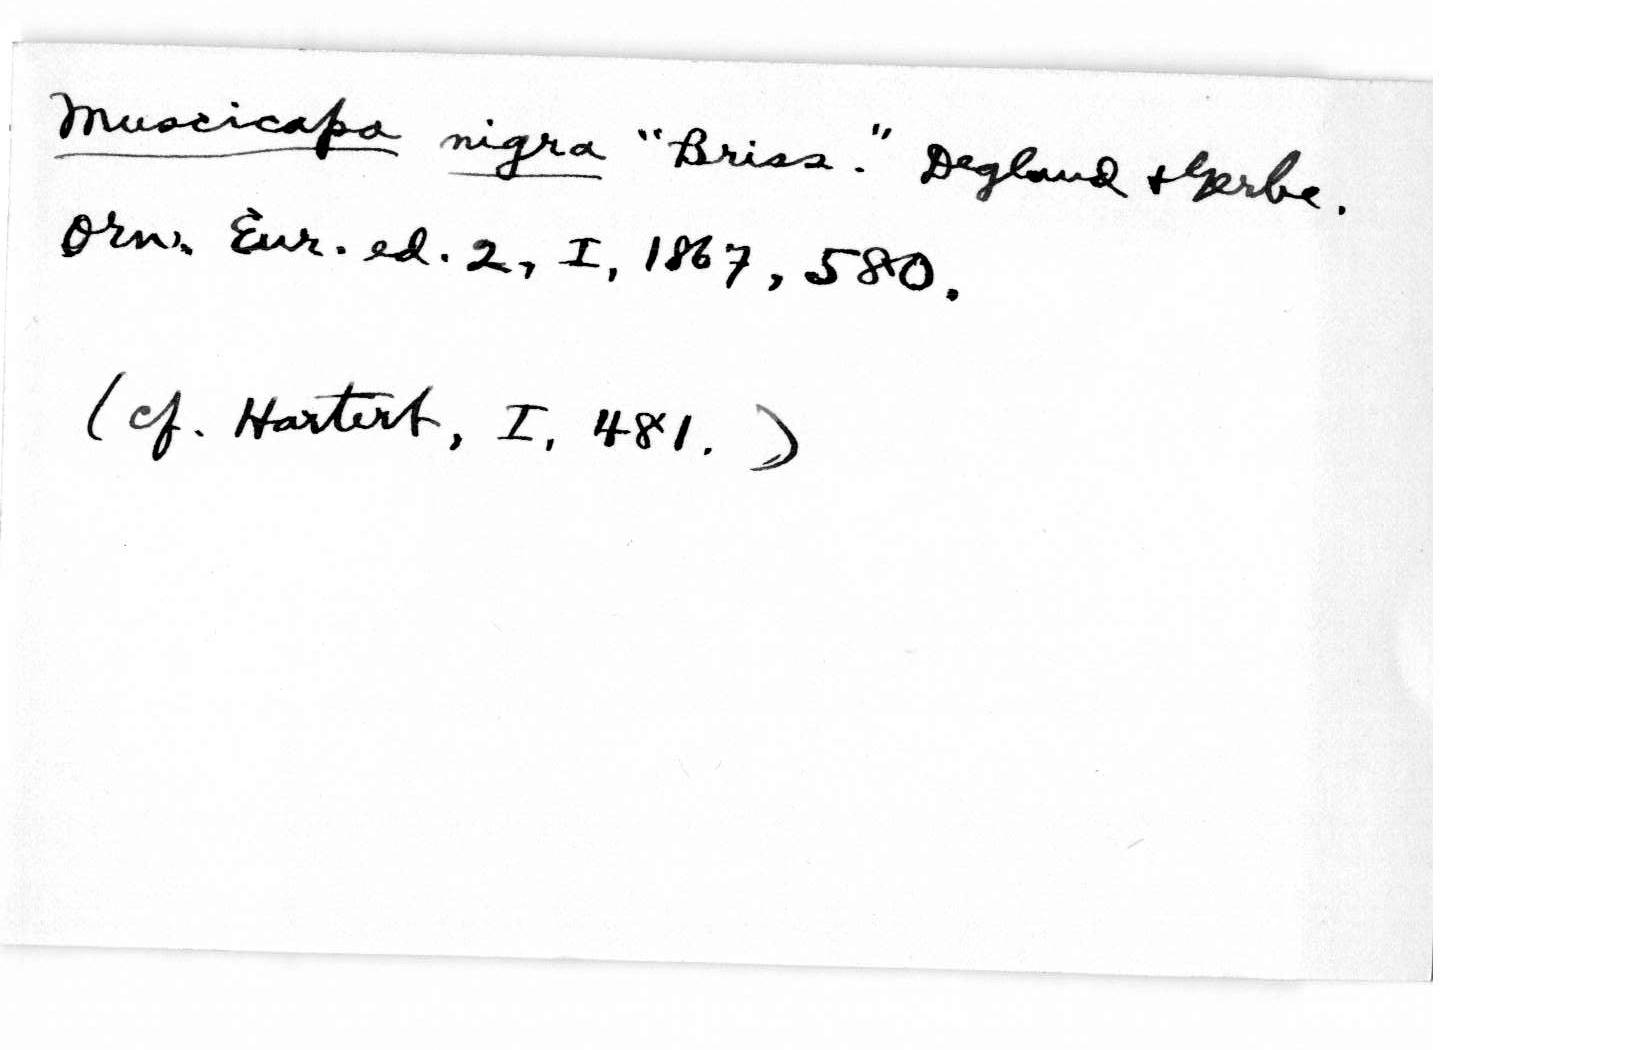 Muscicapa nigra "Briss." Degland & Gerbe.
Orn. Eur. ed. 2, I, 1867, 580.
(cf. Hartert, I, 481.)